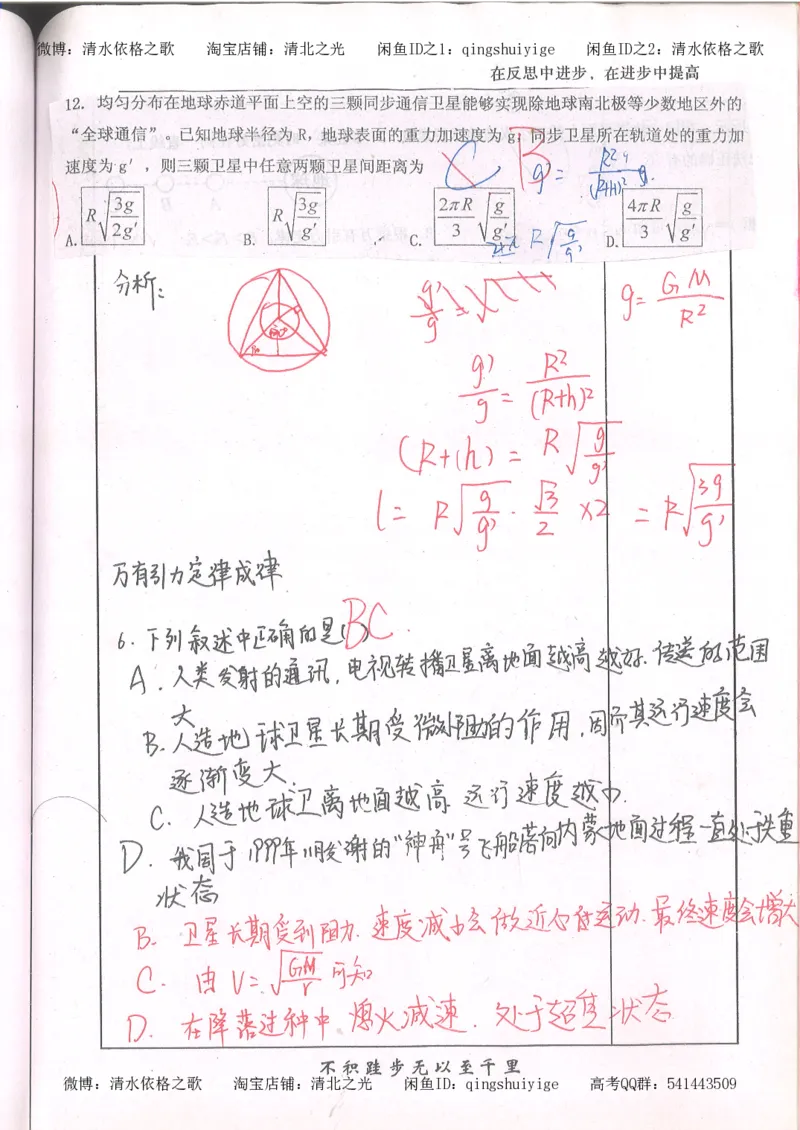 微博：清水依格之歌 淘宝店铺：清北之光 闲鱼ID之1：qingshuiyige 闲鱼ID之2：清水依格之歌
在反思中进步，在进步中提高
12. 均匀分布在地球赤道平面上空的三颗同步通信卫星能够实现除地球南北极等少数地区外的
“全球通信”。已知地球半径为 R，地球表面的重力加速度为 g，同步卫星所在轨道处的重力加
速度为 g′，则三颗卫星中任意两颗卫星间距离为
C B g' = R²g/(R+h)²
A. R√(3g/2g′) B. R√(3g/g′) C. 2πR/3 √(g/g′) D. 4πR/3 √(g/g′)
R√(g/g′)
分析：
g'/g = √
g = GM/R²
g'/g = R²/(R+h)²
(R+h) = R√(g/g')
l = R√(g/g') · √3/2 ×2 = R√(3g/g')
万有引力定律成律
6. 下列叙述中正确的是( BC )
A. 人类发射的通讯，电视转播卫星离地面越高越好，传送的范围
大
B. 人造地球卫星长期受微小阻力的作用，因而其运行速度会
逐渐变大.
C. 人造地球卫离地面越高 运行速度越小.
D. 我国于1999年11月发谢的“神舟”号飞船落向内蒙地面过程一直处于失重
状态
B. 卫星长期受到阻力. 速度减小会做近心运动. 最终速度会增大
C. 由 V=√(GM/r) 可知
D. 在降落过种中 熄火减速. 处于超重状态
不积跬步无以至千里
微博：清水依格之歌 淘宝店铺：清北之光 闲鱼ID：qingshuiyige 高考QQ群：541443509